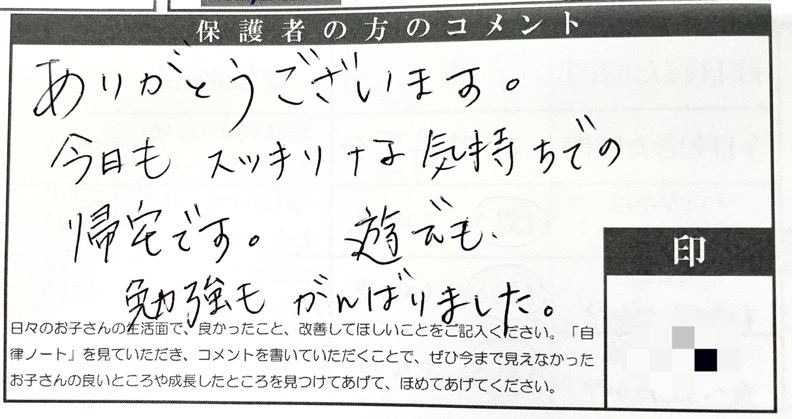 保護者の方のコメント
ありがとうございます。
今日も スッキリナな気持ちでの
帰宅です。 遊でも、
勉強も がんばりました。
印
日々のお子さんの生活面で、良かったこと、改善してほしいことをご記入ください。「自
律ノート」を見ていただき、コメントを書いていただくことで、ぜひ今まで見えなかった
お子さんの良いところや成長したところを見つけてあげて、ほめてあげてください。